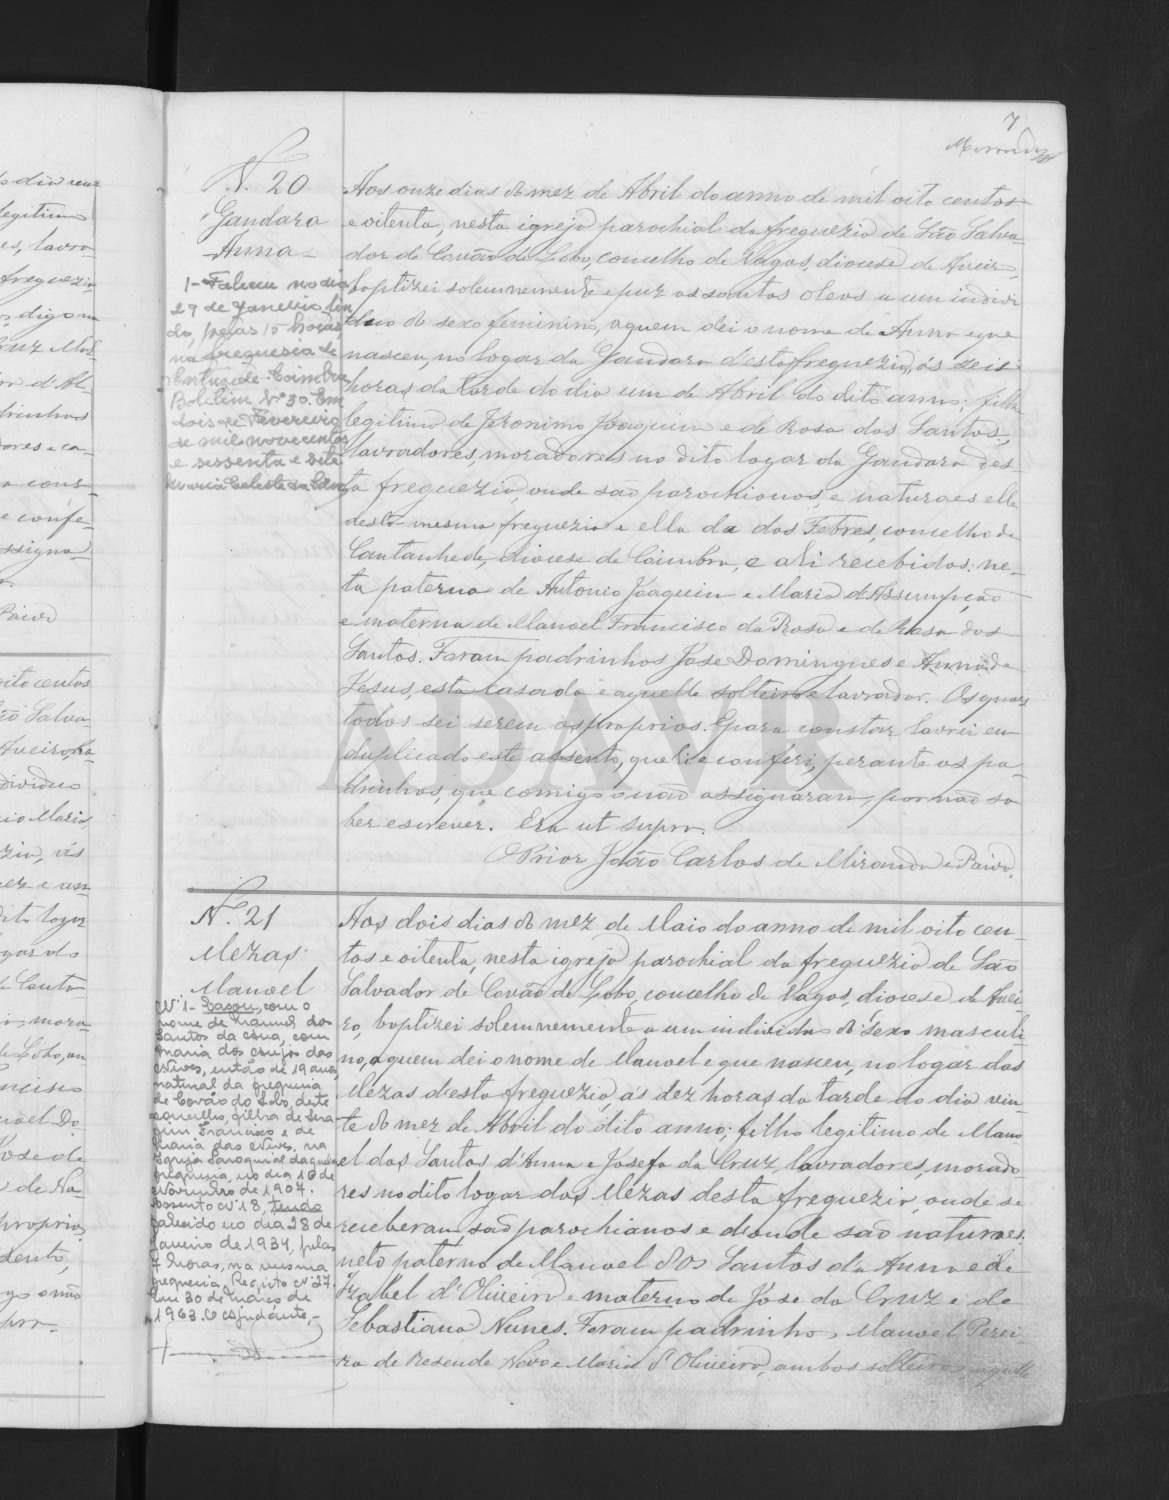 7
Miranda
N.º 20
Gandara
Anna
1 - Faleceu no dia
29 de Janeiro fin
do, pelas 10 horas
na freguesia de
Coimbra
Boletim Nº 30. Em
dois de Fevereiro
de mil novecentos
e sessenta e sete
Maria Celeste da
Aos onze dias do mez de Abril do anno de mil oito centos
e oitenta, nesta igreja parochial da freguezia de São Salva-
dor de Covão do Lobo, concelho de Vagos, diocese de Aveiro,
baptizei solemnemente e puz os santos oleos a um indivi
duo do sexo feminino, a quem dei o nome de Anna e que
nasceu, no logar da Gandara d'esta freguezia, ás seis
horas da tarde do dia um de Abril do dito anno; filha
legitima de Jeronimo Joaquim e de Rosa dos Santos,
lavradores, moradores no dito logar da Gandara des
ta freguezia, onde são parochianos, e naturaes elle
desta mesma freguezia e ella da das Febres, concelho de
Cantanhede, diocese de Coimbra, e ali recebidos; ne-
ta paterna de Antonio Joaquim e Maria d'Assumpção
e materna de Manoel Francisco da Rosa e de Rosa dos
Santos. Foram padrinhos Jose Domingues e Anna de
Jesus, esta casada e aquelle solteiro e lavrador. Os quaes
todos sei serem os proprios. E para constar lavrei em
duplicado este assento, que li e conferi, perante os pa-
drinhos, que comigo não assignaram, por não sa
ber escrever. Era ut supra.
O Prior João Carlos de Miranda e Paiva.
N.º 21
Mezas
Manoel
Nº 1 - Casou, com o
nome de Manuel dos
Santos da Cruz, com
Maria dos Anjos das
Neves, então de 19 anos,
natural da freguesia
de Covão do Lobo, deste
concelho, filha de Sera-
fim Francisco e de
Maria das Neves, na
Igreja Paroquial daquela
freguesia, no dia 18 de
Novembro de 1907.
Assento Nº 18, tendo
falecido no dia 28 de
Janeiro de 1934, pelas
7 horas, na mesma
freguesia. Registo Nº 27.
Em 30 de Março de
1963. O Ajudante,-
Aos dois dias do mez de Maio do anno de mil oito cen-
tos e oitenta, nesta igreja parochial da freguezia de São
Salvador de Covão do Lobo, concelho de Vagos, diocese de Avei-
ro, baptizei solemnemente a um individuo do sexo masculi-
no, a quem dei o nome de Manoel e que nasceu, no logar das
Mezas d'esta freguezia, ás dez horas da tarde do dia vin-
te do mez de Abril do dito anno; filho legitimo de Mano
el dos Santos d'Anna e Josefa da Cruz, lavradores, morado
res no dito logar das Mezas desta freguezia, onde se
receberam, são parochianos e d'onde são naturaes.
neto paterno de Manoel dos Santos da Anna e de
Izabel d'Oliveira e materno de José da Cruz e de
Sebastiana Nunes. Foram padrinhos Manoel Perei-
ra de Resende Novo e Maria d'Oliveira, ambos solteiros, aquelle
ADAVR